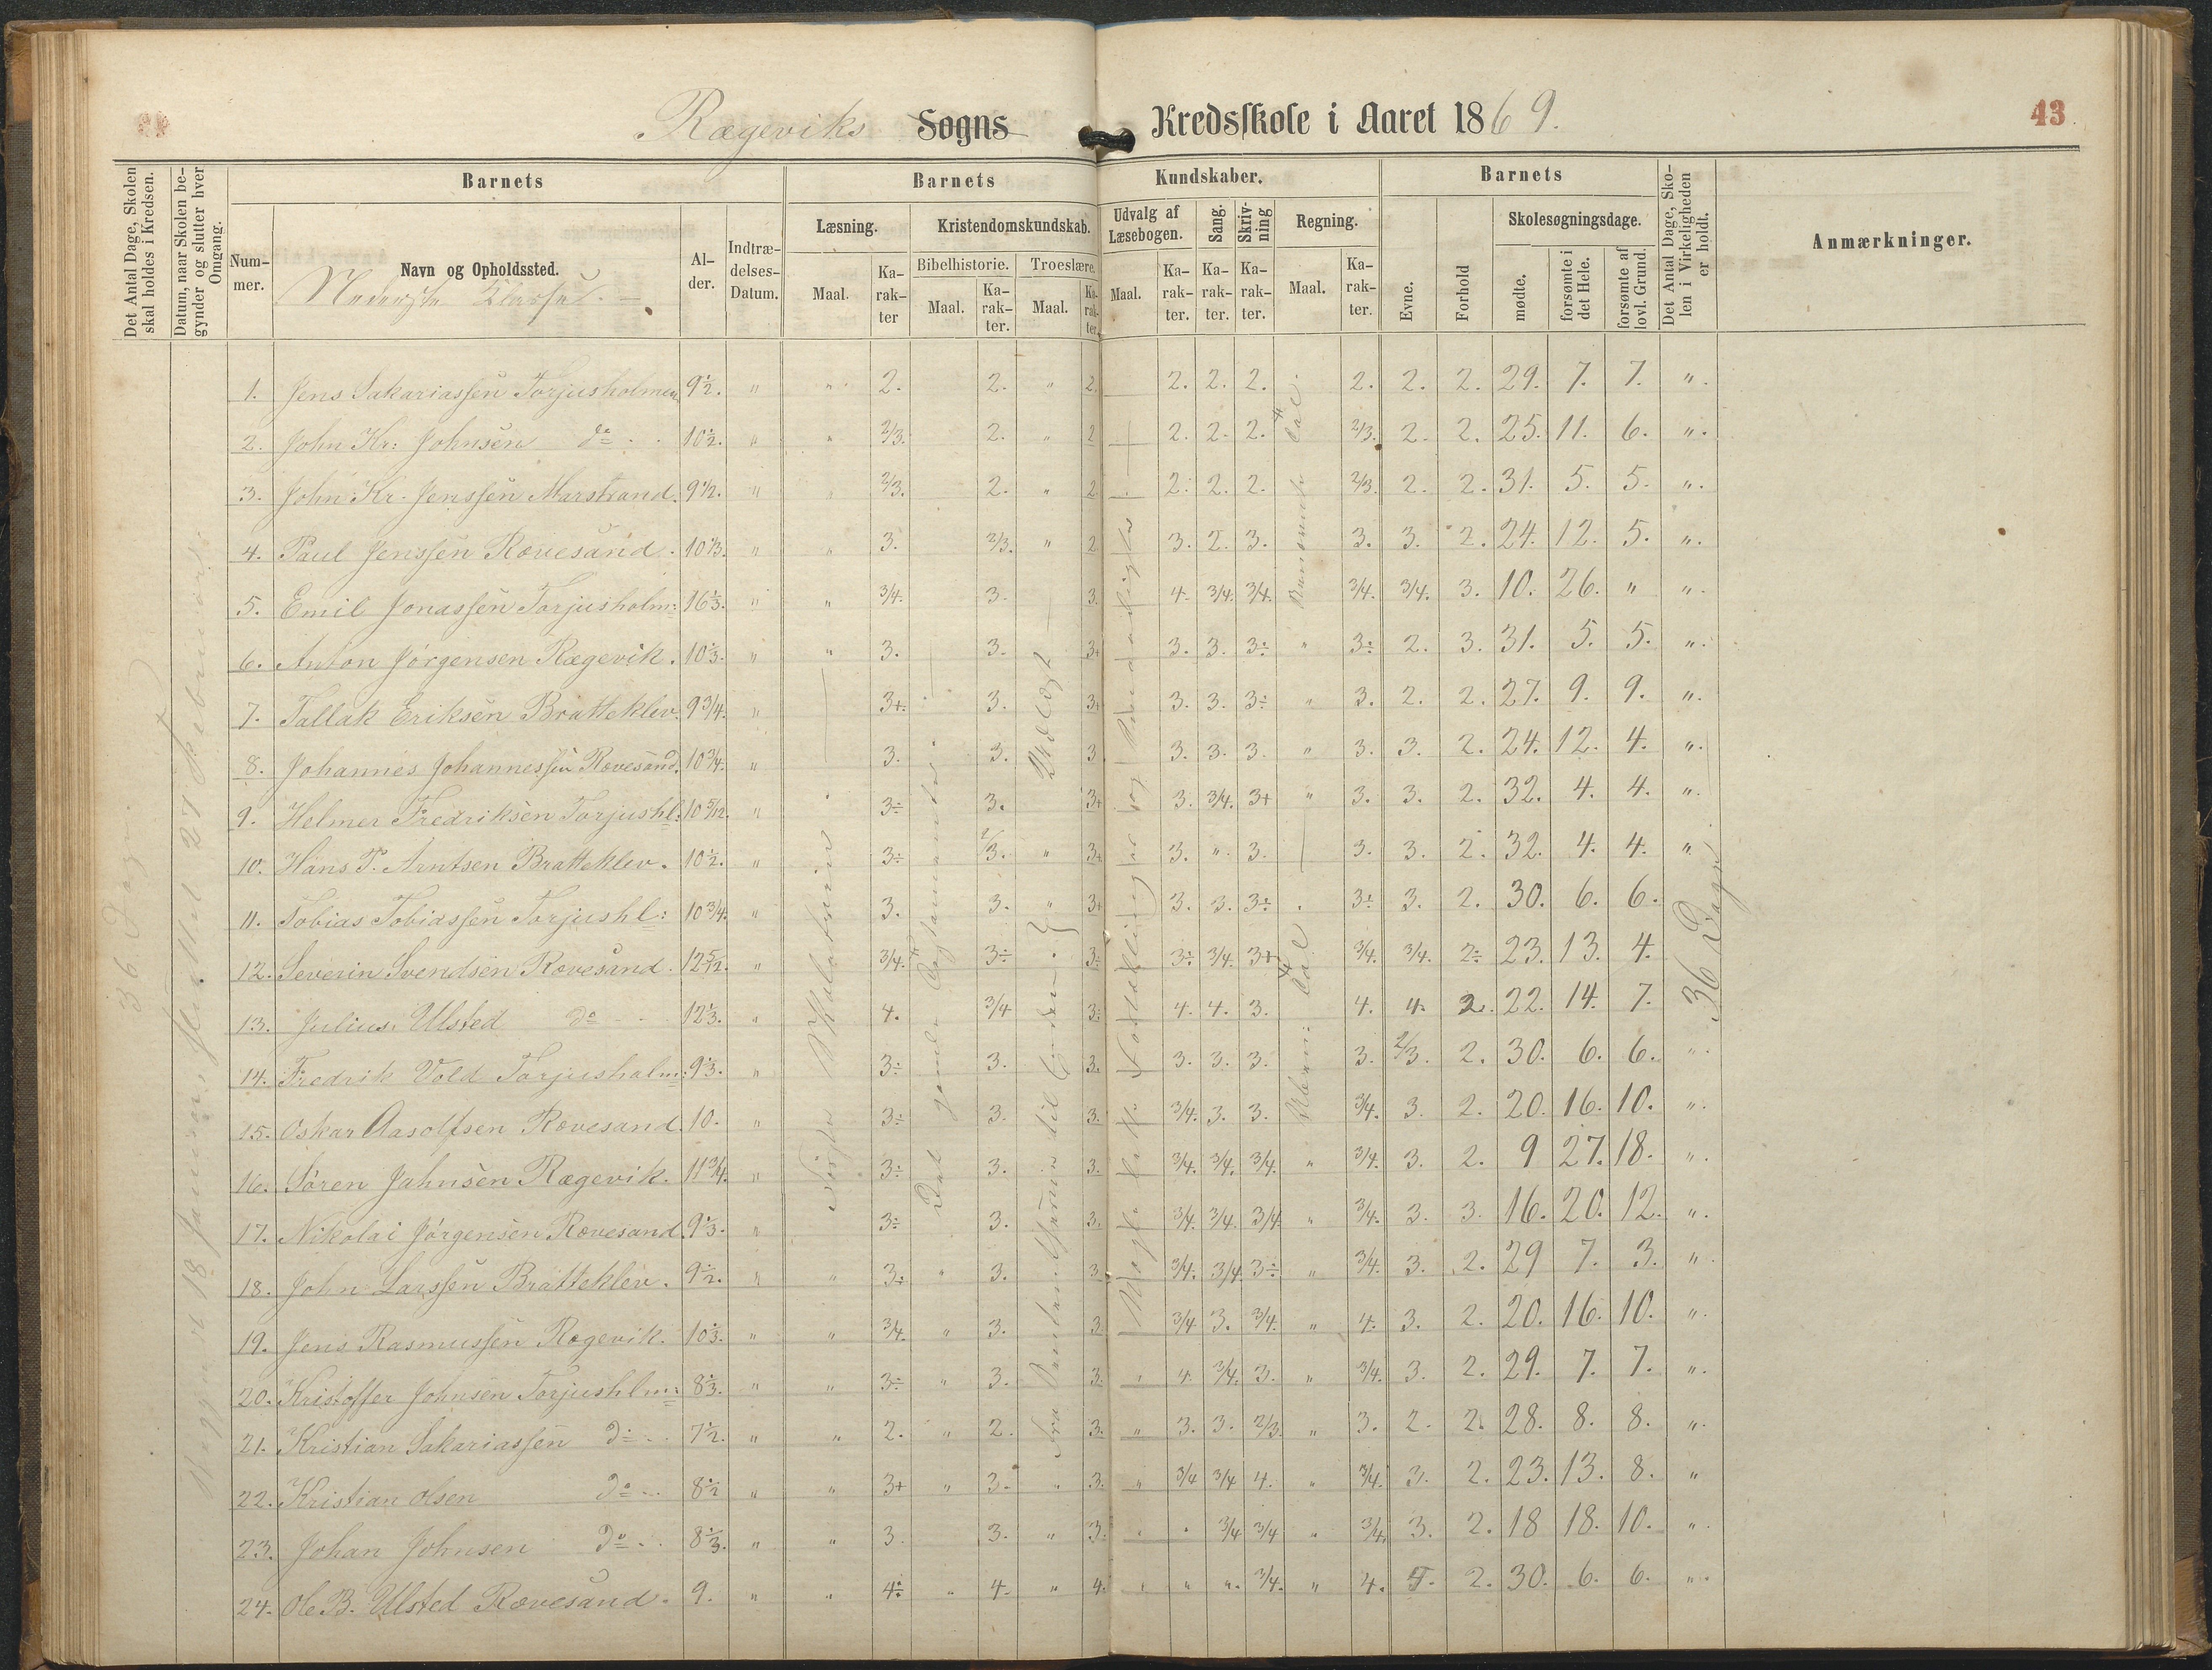 Rægeviks Sogns Kredsskole i Aaret 1869.
43
Det Antal Dage, Skolen skal holdes i Kredsen.
Datum, naar Skolen begynder og slutter hver Omgang.
Barnets
Barnets
Kundskaber.
Barnets
Det Antal Dage, Skolen i Virkeligheden er holdt.
Anmærkninger.
Nummer.
Navn og Opholdssted.
Nederste Klasse.
Alder.
Indtrædelses-Datum.
Læsning.
Kristendomskundskab.
Udvalg af Læsebogen.
Sang.
Skrivning
Regning.
Skolesøgningsdage.
Bibelhistorie.
Troeslære.
Maal.
Karakter
Maal.
Karakter.
Maal.
Karakter.
Maal.
Karakter.
Karakter.
Karakter.
Maal.
Karakter.
Evne.
Forhold
mødte.
forsømte i det Hele.
forsømte af lovl. Grund.
36 Dage
18 Januar 27 Februar
1. Jens Sakariassen Torjusholmen 9½. " " 2. 2. " 2. 2. 2. 2. 2. 2. 2. 29. 7. 7. ".
2. John Kr: Johnsen do 10½. " " 2/3. 2. " 2 2. 2. 2. 2/3. 2. 2. 25. 11. 6. ".
3. John Kr. Jenssen Marstrand. 9½. " " 2/3. 2. " 2 2. 2. 2. 2/3. 2. 2. 31. 5. 5. ".
4. Paul Jenssen Rævesand. 10⅓. " " 3. 2/3. " 2 3. 2. 3. 3. 3. 2. 24. 12. 5. ".
5. Emil Jonassen Torjusholm: 16⅓. " " 3/4. 3. 3. 4. 3/4. 3/4. 3/4. 3/4. 3. 10. 26. " ".
6. Anton Jørgensen Rægevik. 10⅓. " " 3. 3. 3+ 3. 3. 3÷ " 3÷ 2. 3. 31. 5. 5. ".
7. Tallak Eriksen Bratteklev. 9¾. " 3+. 3. 3+ 3. 3. 3÷ " 3. 2. 2. 27. 9. 9. ".
8. Johannes Johannessen Rævesand. 10¾. " 3. 3. 3 3. 3. 3. " 3. 3. 2. 24. 12. 4. ".
9. Helmer Fredriksen Torjushl: 10 5/12. " 3÷ 3. 3+ 3. 3/4. 3+ " 3. 3. 2. 32. 4. 4. ".
10. Hans P. Arntsen Bratteklev. 10½. " 3÷ 2/3. " 3+ 3. ". 3. 3. 3. 2. 32. 4. 4. ".
11. Tobias Tobiassen Torjushl: 10¾. " 3. 3. " 3+ 3. 3. 3÷ . 3÷ 3. 2. 30. 6. 6.
12. Severin Svendsen Rævesand. 12 5/12. " 3/4. 3÷ 3÷ 3÷ 3/4. 3+ 3/4. 3/4. 2÷ 23. 13. 4.
13. Julius Ulsted do 12⅓. " 4. 3/4 3÷ 4. 4. 3. 4. 4. 2. 22. 14. 7.
14. Fredrik Vold Torjusholm: 9⅓. " 3÷ 3. 3. 3. 3. 3. 3. 2/3. 2. 30. 6. 6. ".
15. Oskar Aasolfsen Rævesand. 10. " 3÷ 3. 3. 3/4. 3. 3. 3/4. 3. 2. 20. 16. 10. ".
16. Søren Jahnsen Rægevik. 11¾. " 3÷ 3. 3. 3/4. 3/4. 3/4. " 3/4. 3. 2. 9 27. 18. ".
17. Nikolai Jørgensen Rævesand. 9⅓. " 3÷ 3. 3. 3/4. 3/4. 3/4 " 3/4. 3. 3. 16. 20. 12. ".
18. John Larssen Bratteklev. 9½. " " 3÷ " 3. 3 3/4. 3/4 3÷ " 3/4. 3. 2. 29 7. 3. ".
19. Jens Rasmussen Rægevik. 10⅓. " " 3/4. " 3. 3 3/4 3. 3/4. " 4. 3. 2. 20. 16. 10. ".
20. Kristoffer Johnsen Torjushlm: 8⅓. " " 3÷ " 3. 3. " 4. 3/4. 3. " 3/4. 3. 2. 29. 7. 7. ".
21. Kristian Sakariassen do 7½. " " 2. " 2. 3. " 3. 3. 2/3. " 3. 2. 2. 28. 8. 8. ".
22. Kristian Olsen do 8½ " " 3+ " 3. " 3. " 3/4 3/4 4. " 3/4. 3. 2. 23. 13. 8. "
23. Johan Johnsen do 8⅓. " " 3. 3. " 3. " " 3/4 3/4 " 3/4. 3. 2. 18 18. 10. ".
24. Ole B. Ulsted Rævesand. 9. " " 4÷ " 4. " 4. " " ". 3/4. " 4. 4. 2. 30. 6. 6. ".
36 Dage